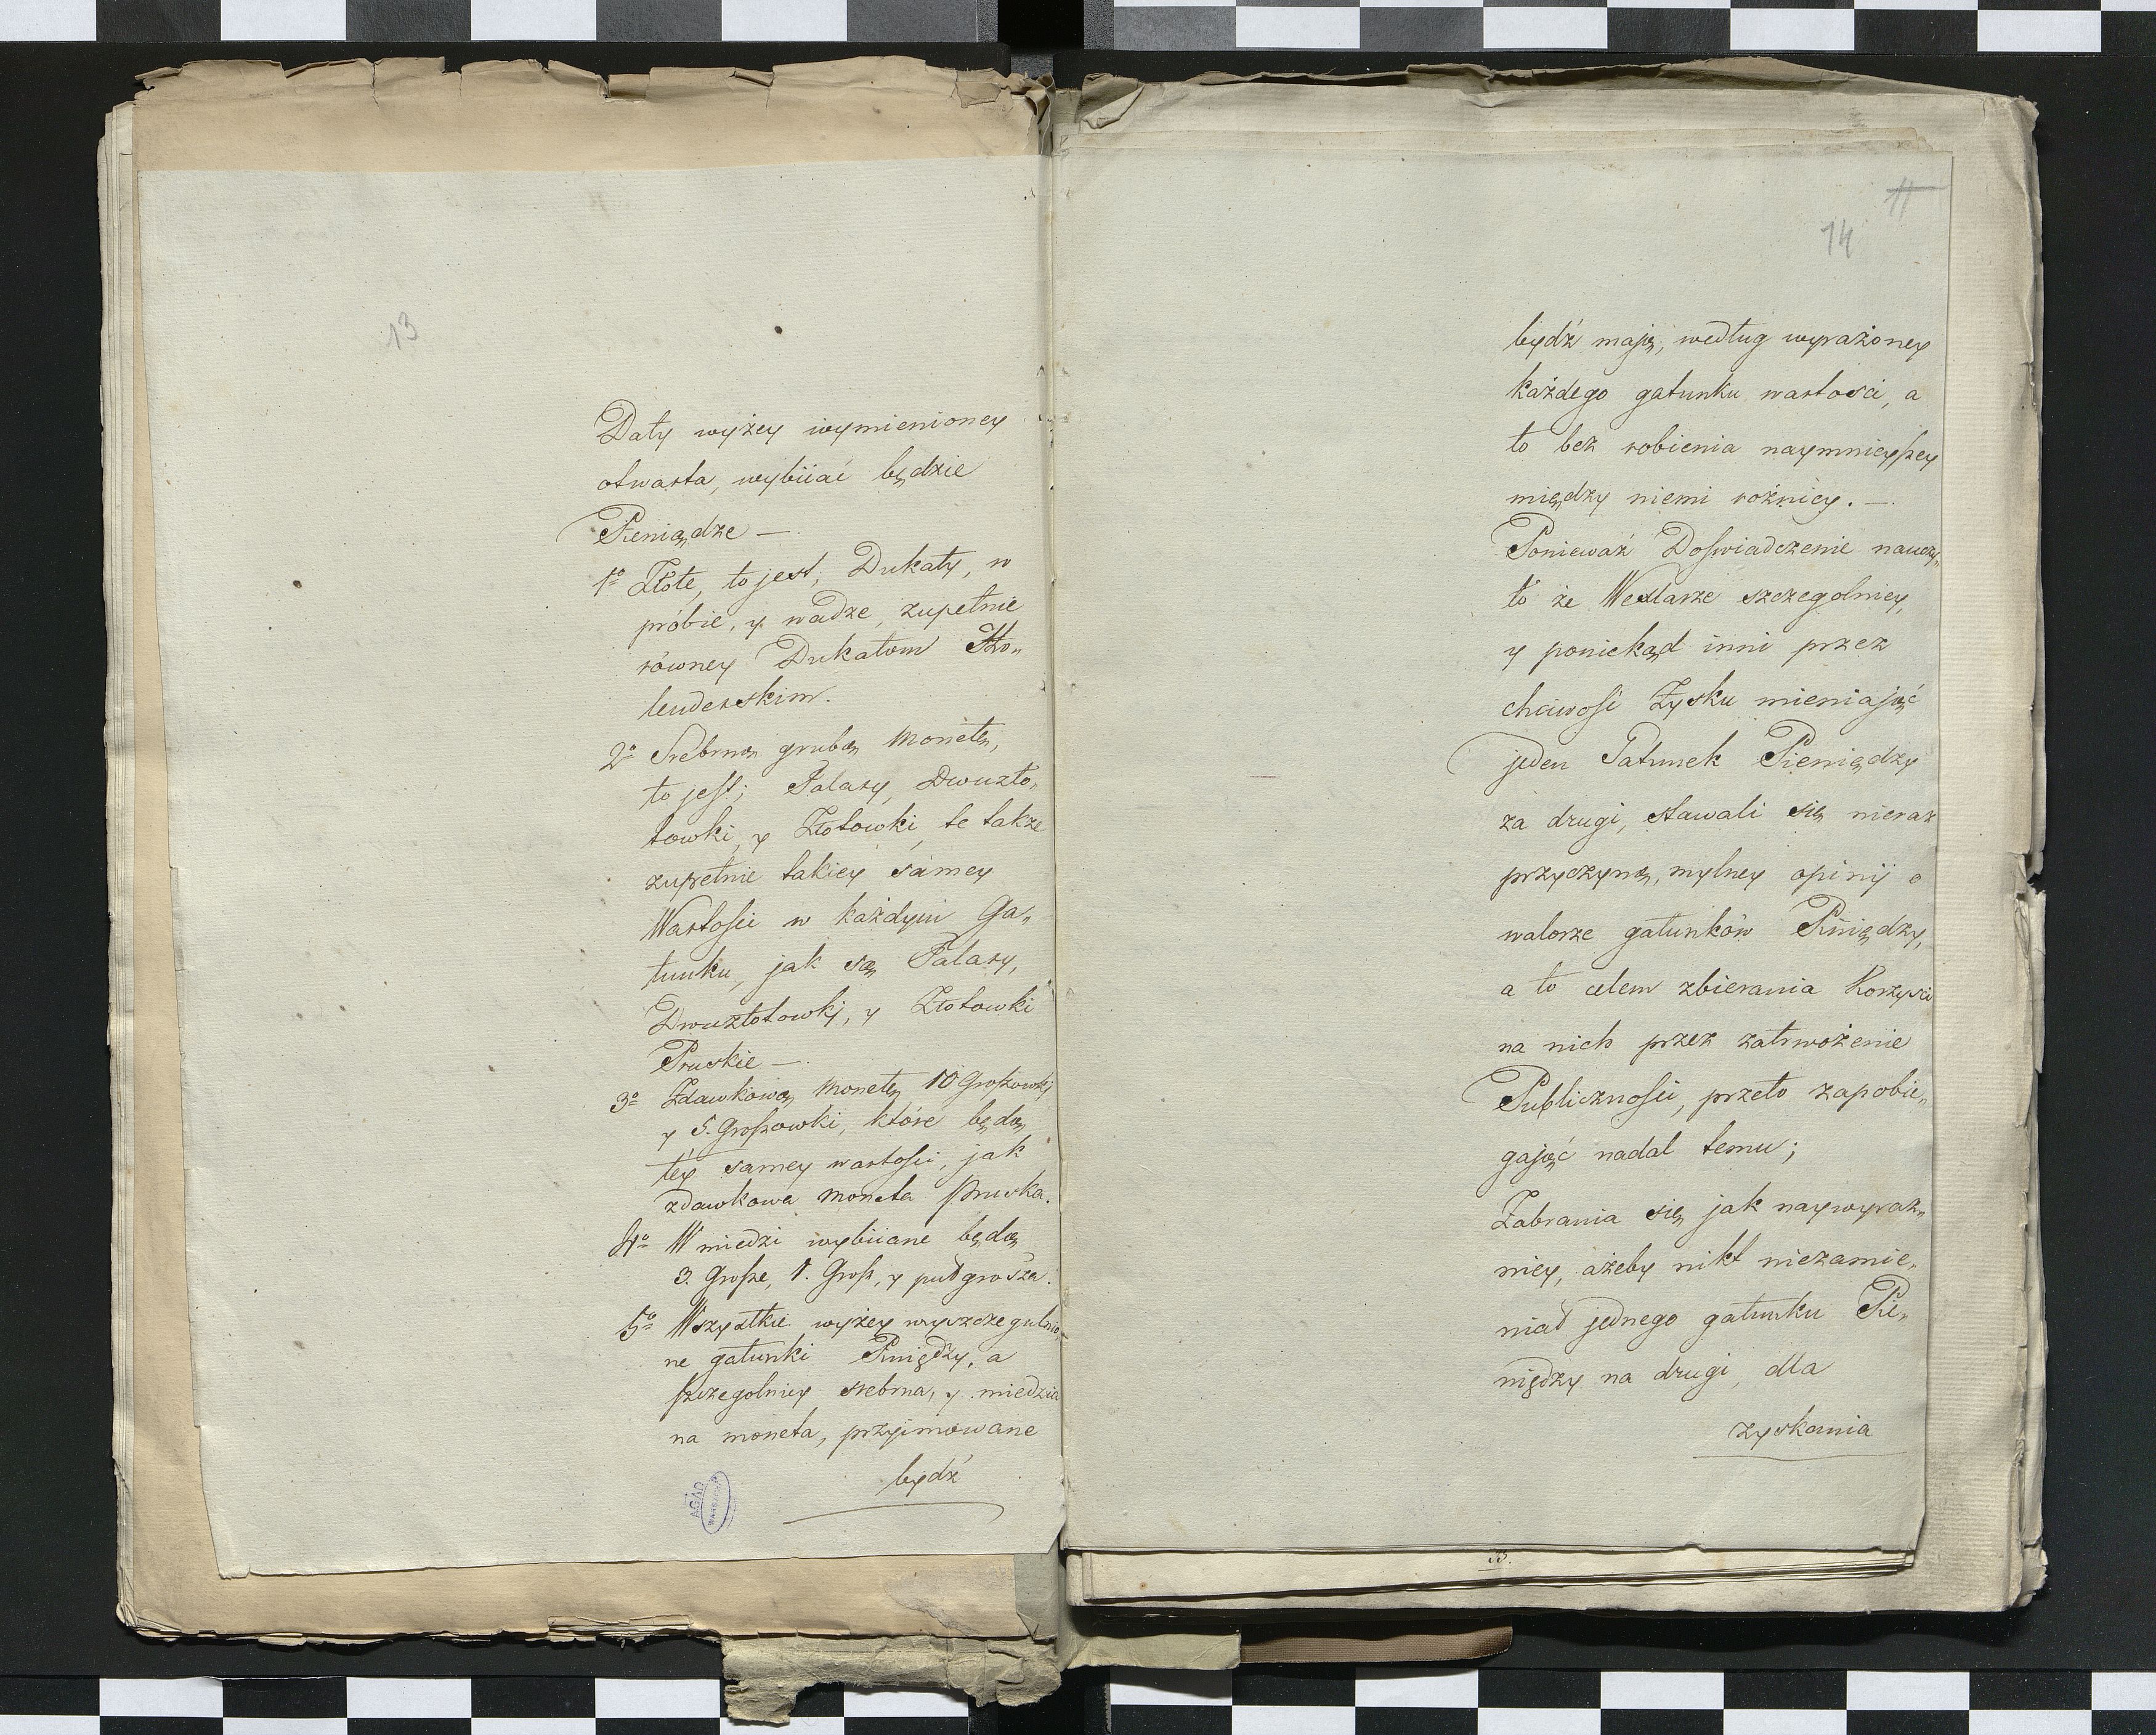 13
Daty wyżey wymienioney
otwarta, wybiiać będzie
Pieniądze —.
1º Złote, to jest, Dukaty, w
próbie, y wadze, zupełnie
równey Dukatom Ho„
lenderskim.
2º Srebrną grubą Monetę,
to jest; Talary, Dwuzło„
towki, y Złotowki, te także
zupełnie takiey samey
Wartości w każdym Ga„
tunku, jak są Talary,
Dwuzłotowki, y Złotowki
Pruskie —.
3º Zdawkową Monetę 10 Groszowki
y 5. Groszowki, które będą
téy samey wartości, jak
zdawkowa moneta Pruska.
4º W miedzi wybiiane będą
3. Grosze, 1. Grosz, y puł grosza.
5º Wszystkie wyżey wyszczegulnio„
ne gatunki Pniędzy, a
szczegolniey srebrna, y miedzia
na moneta, przyimowane
bydź
AGAD
WARSZAWA
11
14
bydź mają, według wyrażoney
każdego gatunku wartości, a
to bez robienia naymnieyszey
między niemi rożnicy. —
Poniewaź Doswiadczenie nauczy„
ło że Wexlarze szczegolniey,
y poniekąd inni przez
chciwość Zysku mieniając
jeden Gatunek Pieniędzy
za drugi, stawali się nieraz
przyczyną, mylney opinij o
walorze gatunków Pniędzy,
a to celem zbierania Korzyści
na nich przez zatrwożenie
Publiczności, przeto zapobie„
gając nadal temu;
Zabrania się jak naywyraz„
niey, ażeby nikt niezamie„
niał jednego gatunku Pie„
niędzy na drugi, dla
zyskania
33.